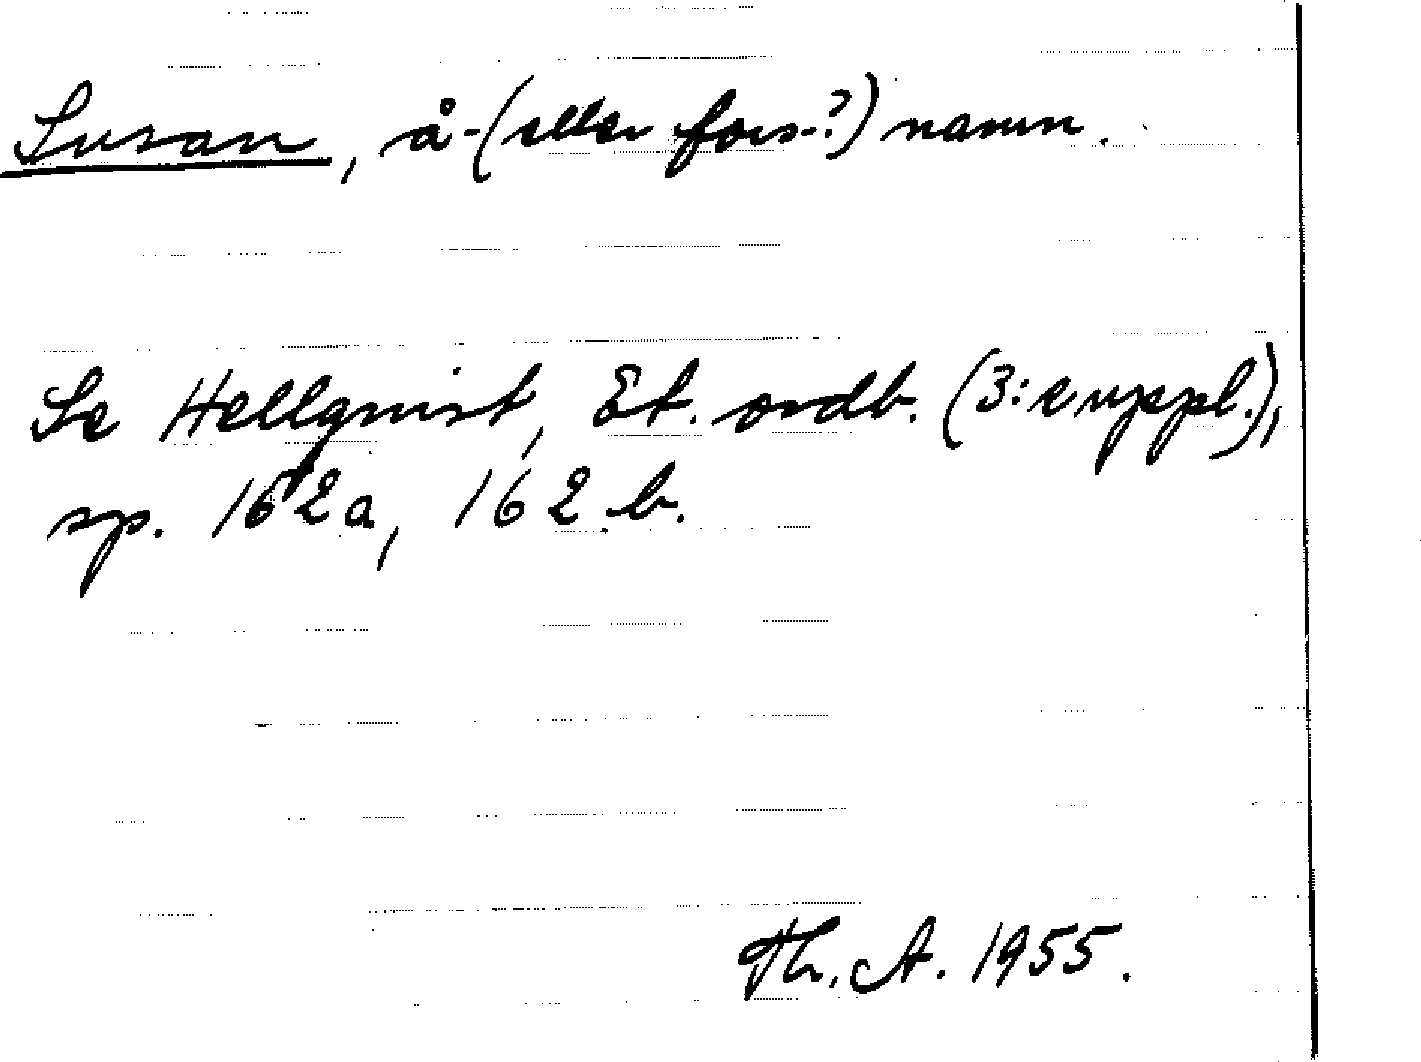 Susan, å- (eller fors-?) namn.
Se Hellquist, Et. ordb. (3:e uppl.),
sp. 162a, 162 b.
Th. A. 1955.